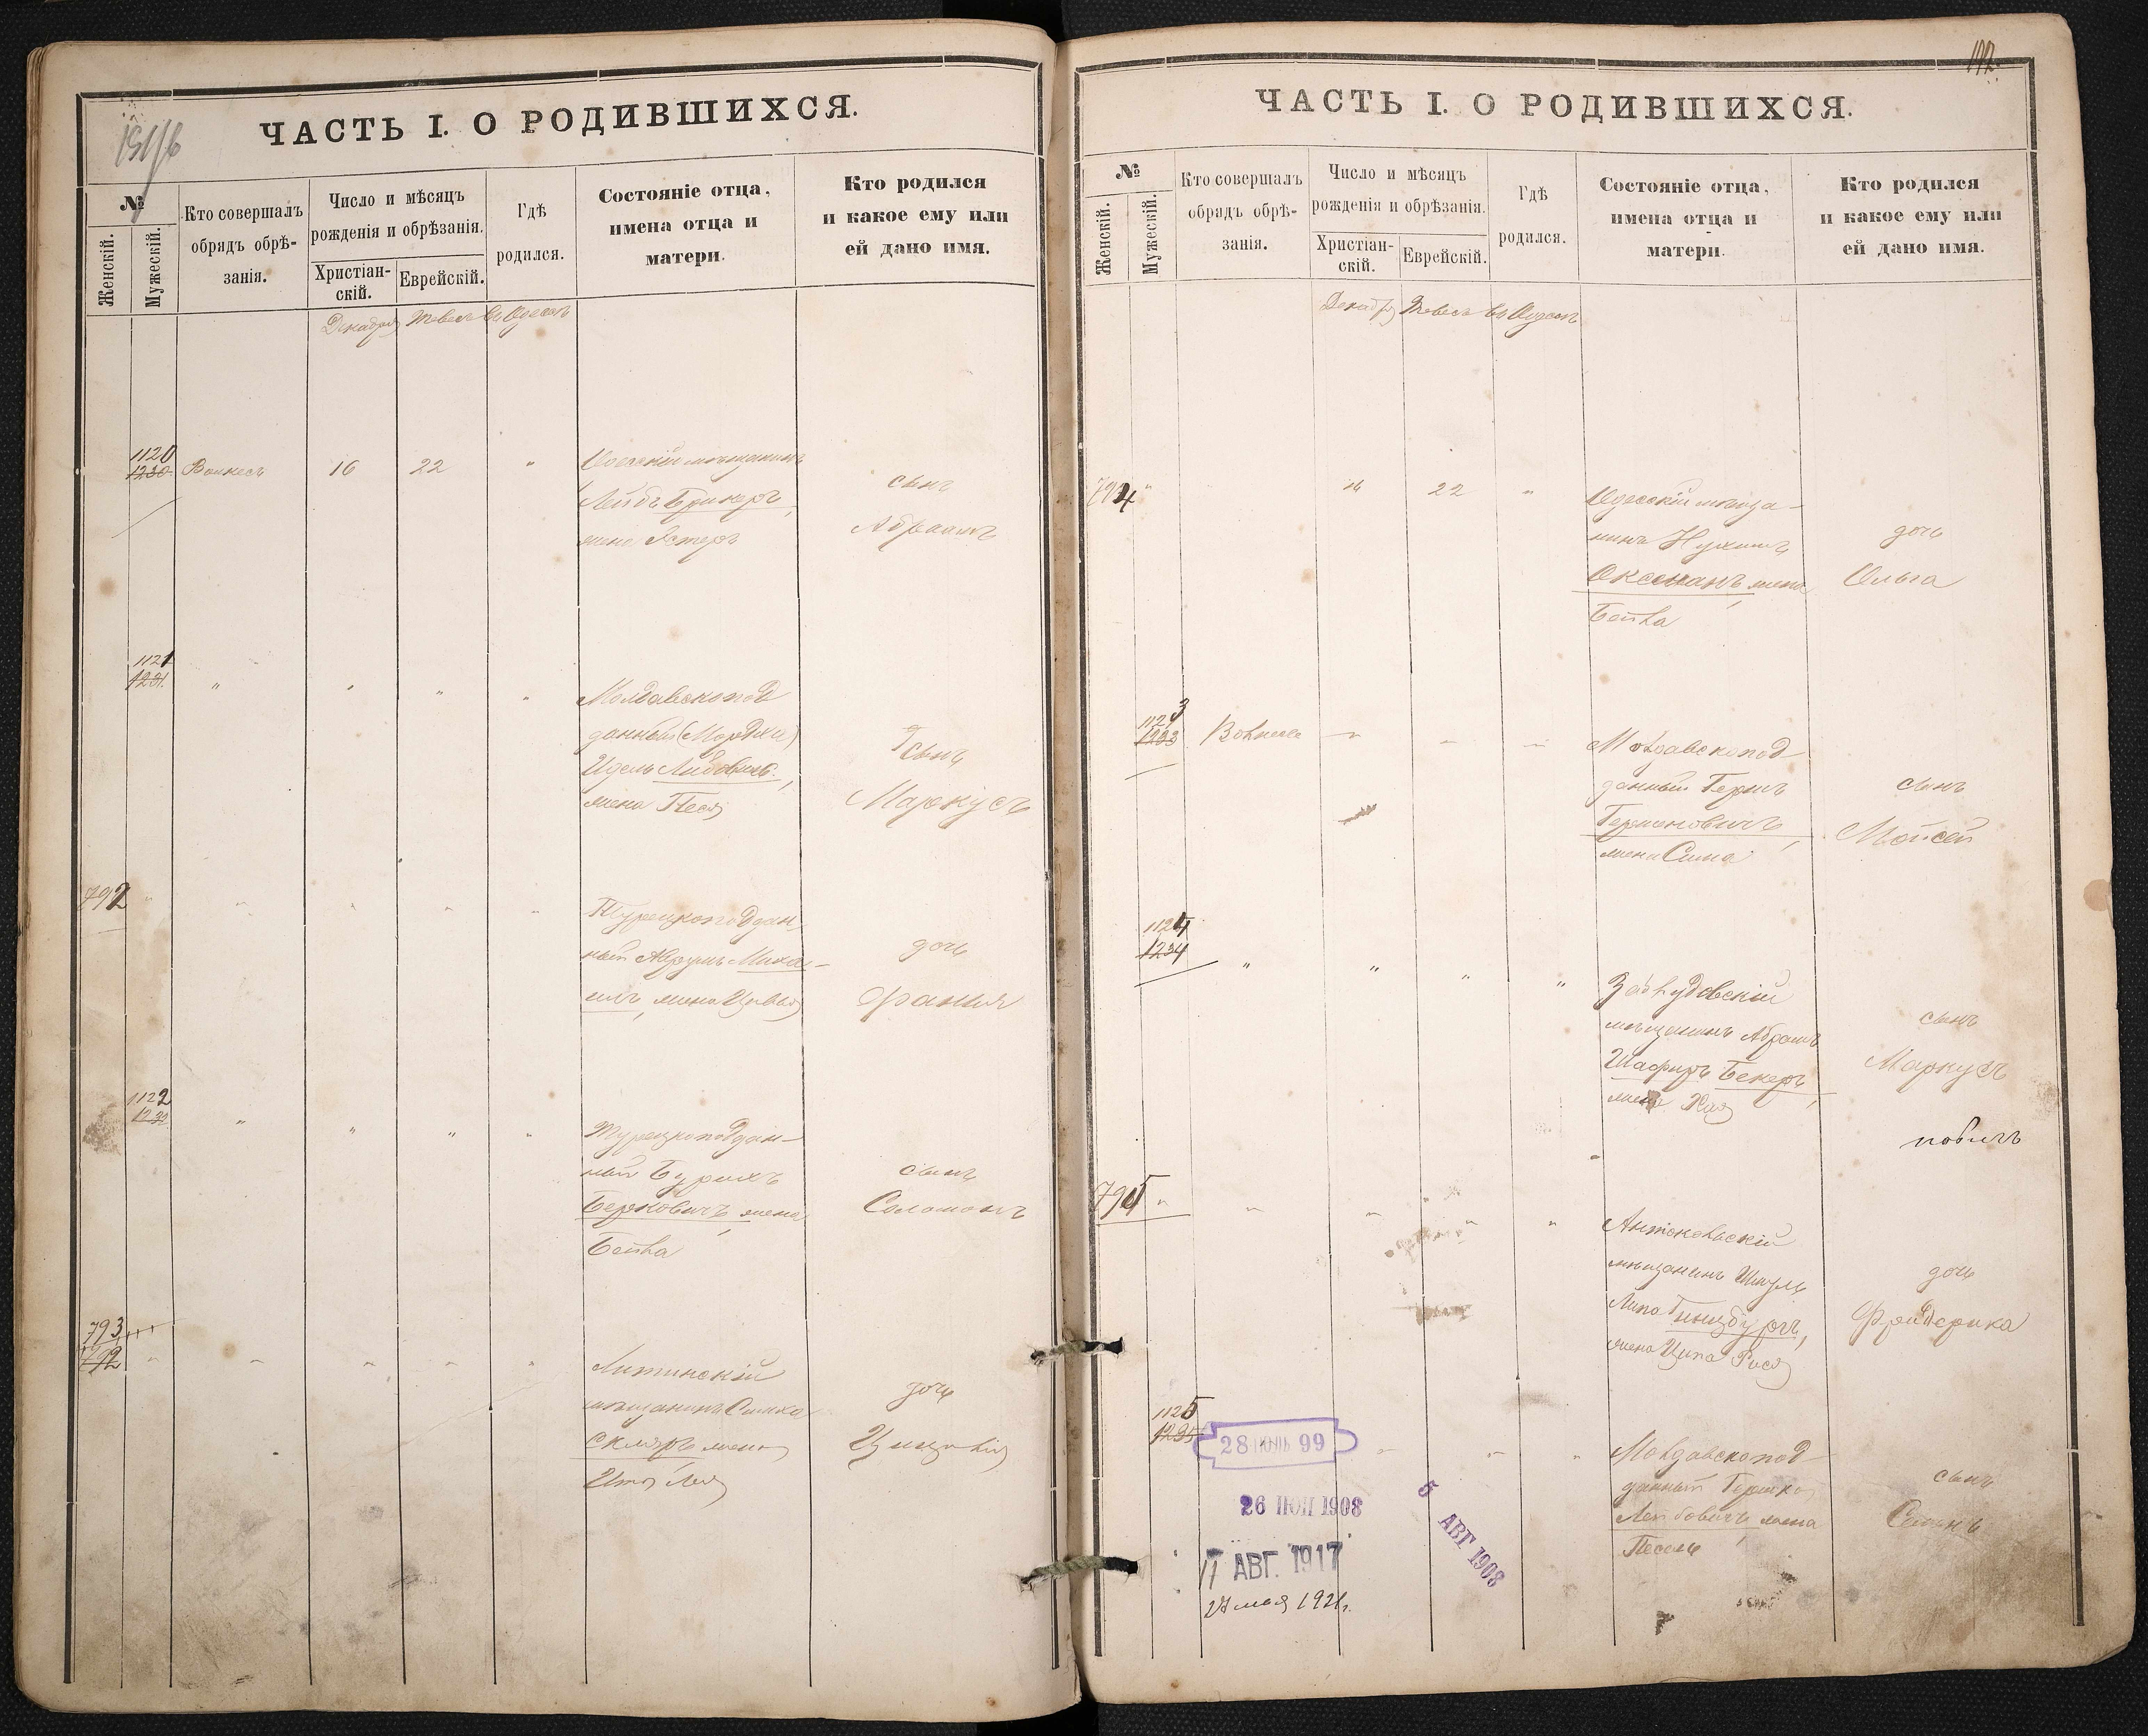 151/6
ЧАСТЬ I. О РОДИВШИХСЯ.
№
Женскій.
Мужескій.
Кто совершалъ
обрядъ обрѣ-
занія.
Число и мѣсяцъ
рожденія и обрѣзанія.
Христіан-
скій.
Еврейскій.
Гдѣ
родился.
Состояніе отца,
имена отца и
матери.
Кто родился
и какое ему или
ей дано имя.
Декабря Тевесъ Въ Одессѣ
1120
1230
16
22
"
Одесскій мѣщанинъ
Лейбъ Брикеръ,
жена Эстеръ
сынъ
Абрамъ
1121
1231.
"
"
"
"
Молдавскопод
данный (Мордко)
Идель Лейбовичъ,
жена Песя
сынъ
Маркусъ
792
"
"
"
"
"
Турецкоподдан
ный Аврумъ Миха-
иль, жена Цивья
дочь
Фанія
1122
1232
"
"
"
"
Турецкоподдан-
ный Бурихъ
Берковичъ, жена
Бейла
сынъ
Соломонъ
793
792
"
"
"
"
"
Литинскій
мѣщанинъ Симха
Скляръ, жена
Ита Лея
дочь
Цицилія
112.
ЧАСТЬ I. О РОДИВШИХСЯ.
№
Женскій.
Мужескій.
Кто совершалъ
обрядъ обрѣ-
занія.
Число и мѣсяцъ
рожденія и обрѣзанія.
Христіан-
скій.
Еврейскій.
Гдѣ
родился.
Состояніе отца,
имена отца и
матери.
Кто родился
и какое ему или
ей дано имя.
Декабр Тевесъ Въ Одессѣ
794
"
16
22
"
Одесскій мѣща-
нинъ Нухимъ
Оксманъ, жена
Бейла
дочь
Ольга
1123
1233
"
"
"
Молдавскопод
данный Гершъ
Германовичъ,
жена Сима
сынъ
Мойсей
1124
1234
"
"
"
"
Заблудовскій
мѣщанинъ Абрамъ
Шафиръ Бекеръ,
жена Хая
сынъ
Маркусъ
795
"
"
"
"
"
Антокольскій
мѣщанинъ Шмуль
Липа Гинзбургъ,
жена Ципа Рися
дочь
Фридерика
1125
1235
28 ІЮЛЬ 99
"
"
"
Молдавскопод
данный Гершко
Лейбовичъ, жена
Песель
сынъ
26 ІЮЛ 1908
5 АВГ 1908
17 АВГ. 1917
27 мая 1921г.